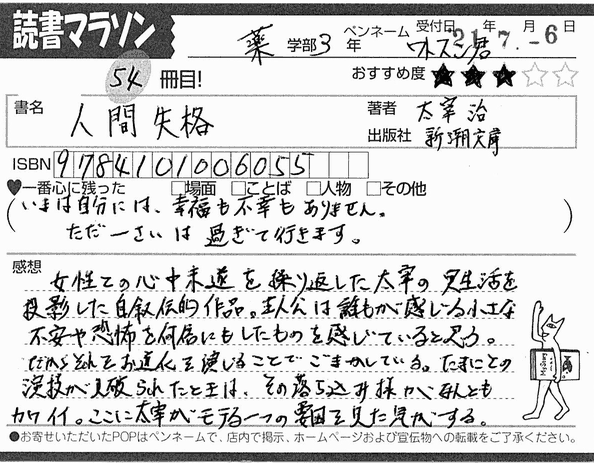 読書マラソン
薬 学部 3 年
ペンネーム ワトスン君
受付日 21年 7月 -6日
54 冊目!
おすすめ度 ★★★☆☆
書名 人間失格
著者 太宰治
出版社 新潮文庫
ISBN 9784101006055
♥一番心に残った □場面 □ことば □人物 □その他
(いまは自分には、幸福も不幸もありません。
ただ一さいは過ぎて行きます。)
感想
女性との心中未遂を繰り返した太宰の実生活を
投影した自叙伝的作品。主人公は誰もが感じる小さな
不安や恐怖を何倍にもしたものを感じていると思う。
だからそれをお道化を演じることでごまかしている。たまにその
演技が見破られたときは、その落ち込み様がなんとも
カワイイ。ここに太宰がモテる一つの要因を見た気がする。
●お寄せいただいたPOPはペンネームで、店内で掲示、ホームページおよび宣伝物への転載をご了承ください。